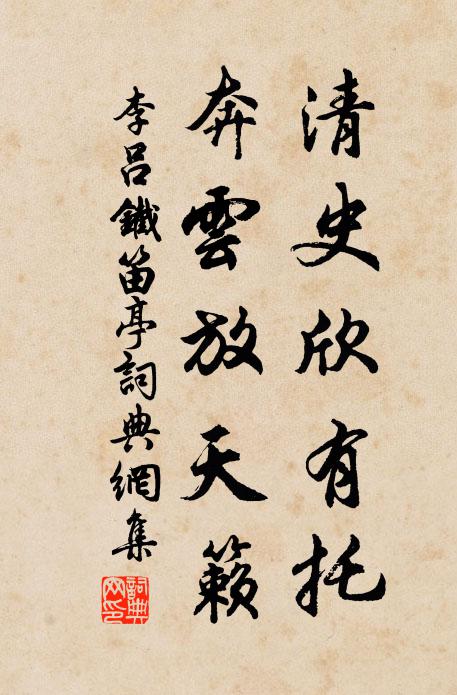 清史欣有托
奔雲放天籟
李呂鐵笛亭詞典網集
詞典
网印